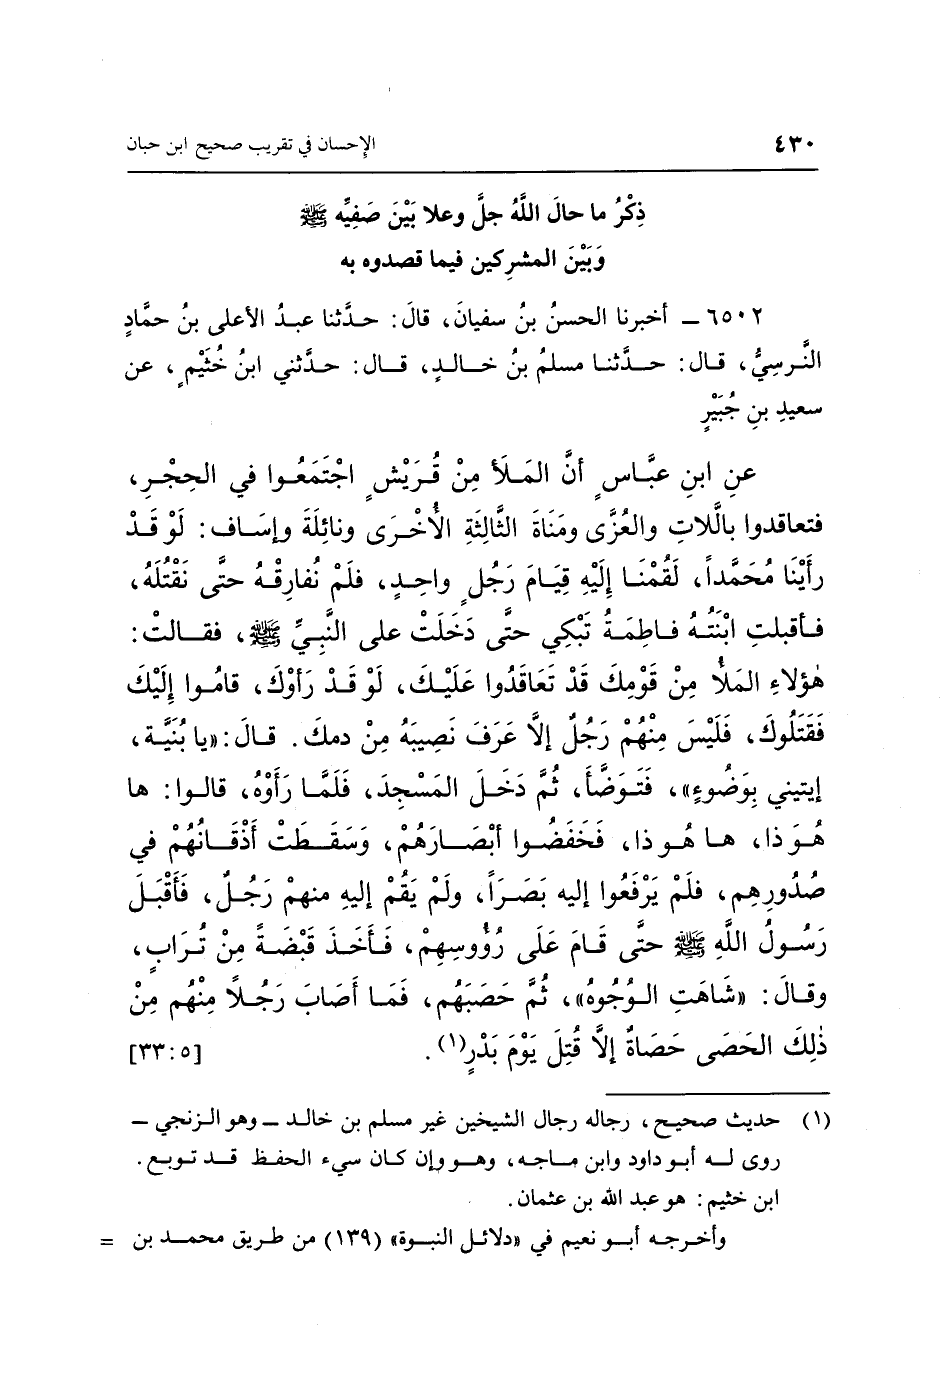 ٤٣٠ الإحسان في تقريب صحيح ابن حبان
ذِكْرُ ما حالَ اللَّهُ جلَّ وعلا بَيْنَ صَفِيِّه ﷺ
وَبَيْنَ المشرِكين فيما قصدوه به
٦٥٠٢ ــ أخبرنا الحسنُ بنُ سفيانَ، قالَ: حدَّثنا عبدُ الأعلى بنُ حمَّادٍ
النَّرسِيُّ، قال: حدَّثنا مسلمُ بنُ خالدٍ، قال: حدَّثني ابنُ خُثَيْمٍ، عن
سعيدِ بنِ جُبَيْرٍ
عنِ ابنِ عبَّاسٍ أنَّ المَلَأَ مِنْ قُرَيْشٍ اجْتَمَعُوا في الحِجْرِ،
فتعاقدوا باللَّاتِ والعُزَّى ومَنَاةَ الثَّالِثَةِ الأُخْرَى ونائِلَةَ وإسَاف: لَوْ قَدْ
رأَيْنَا مُحَمَّداً، لَقُمْنَا إلَيْهِ قِيَامَ رَجُلٍ واحِدٍ، فلَمْ نُفارِقْهُ حتَّى نَقْتُلَهُ،
فأقبلتِ ابْنَتُهُ فاطِمَةُ تَبْكِي حتَّى دَخَلَتْ على النَّبِيِّ ﷺ، فقالتْ:
هٰؤلاءِ المَلَأُ مِنْ قَوْمِكَ قَدْ تَعَاقَدُوا عَلَيْكَ، لَوْ قَدْ رَأَوْكَ، قامُوا إلَيْكَ
فَقَتَلُوكَ، فَلَيْسَ مِنْهُمْ رَجُلٌ إلَّا عَرَفَ نَصِيبَهُ مِنْ دمكَ. قالَ: «يا بُنَيَّة،
إيتيني بِوَضُوءٍ»، فَتَوَضَّأَ، ثُمَّ دَخَلَ المَسْجِدَ، فَلَمَّا رَأَوْهُ، قالوا: ها
هُوَ ذا، ها هُو ذا، فَخَفَضُوا أَبْصَارَهُمْ، وَسَقَطَتْ أَذْقَانُهُمْ في
صُدُورِهِم، فلَمْ يَرْفَعُوا إليه بَصَرَاً، ولَمْ يَقُمْ إليهِ منهمْ رَجُلٌ، فَأَقْبَلَ
رَسُولُ اللَّهِ ﷺ حتَّى قَامَ عَلَى رُؤُوسِهِمْ، فَأَخَذَ قَبْضَةً مِنْ تُرَابٍ،
وقالَ: «شَاهَتِ الوُجُوهُ»، ثُمَّ حَصَبَهُم، فَمَا أَصَابَ رَجُلاً مِنْهُم مِنْ
ذٰلِكَ الحَصَى حَصَاةٌ إلَّا قُتِلَ يَوْمَ بَدْرٍ(١). [٥:٣٣]
(١) حديث صحيح، رجاله رجال الشيخين غير مسلم بن خالد ــ وهو الزنجي ــ
روى له أبو داود وابن ماجه، وهو وإن كان سيء الحفظ قد توبع.
ابن خثيم: هو عبد الله بن عثمان.
وأخرجه أبو نعيم في «دلائل النبوة» (١٣٩) من طريق محمد بن =